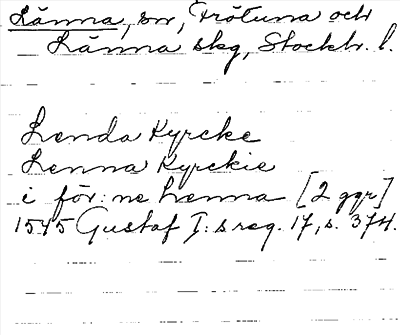 Länna, sn, Frötuna och
Länna skg, Stockh. l.
Lenda Kyrcke
Lenna Kyrckie
i för: ne Lenna [2 ggr]
1545 Gustaf I: s reg. 17, s. 374.